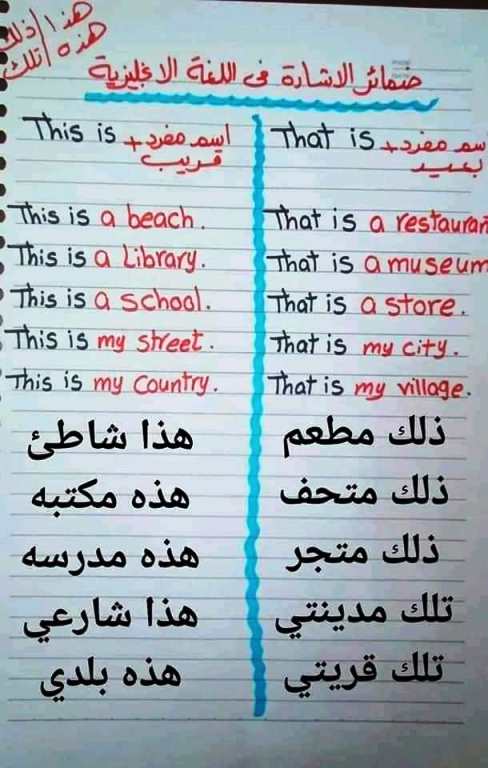 هذا/ذلك
هذه/تلك
ضمائر الاشارة في اللغة الانجليزية
This is + اسم مفرد قريب
That is + اسم مفرد بعيد
This is a beach.
This is a Library.
This is a school.
This is my street.
This is my country.
That is a restauran
That is a museum
That is a store.
That is my city.
That is my village.
هذا شاطئ
هذه مكتبه
هذه مدرسه
هذا شارعي
هذه بلدي
ذلك مطعم
ذلك متحف
ذلك متجر
تلك مدينتي
تلك قريتي